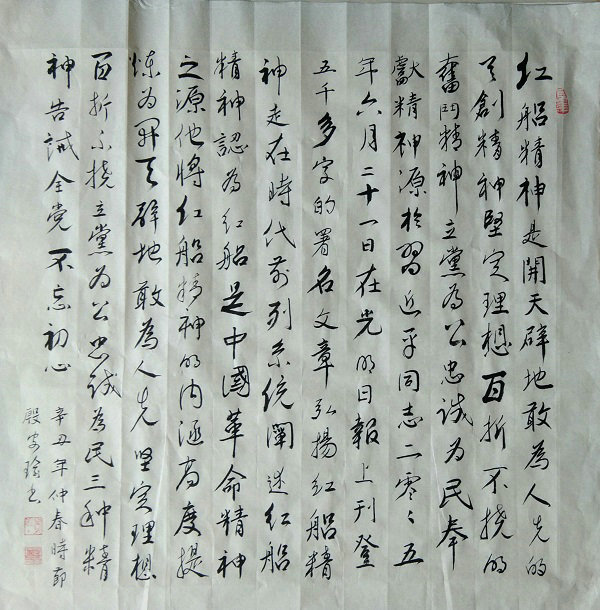 红船精神是開天辟地敢為人先的
首創精神堅定理想百折不撓的
奮鬥精神立黨為公忠诚为民奉
獻精神源於習近平同志二零零五
年六月二十一日在光明日報上刊登
五千多字的署名文章弘揚红船精
神走在時代前列系统闡述红船
精神認为红船是中國革命精神
之源他將红船精神的内涵高度提
煉为開天辟地敢為人先坚定理想
百折不撓立黨為公忠诚為民三种精
神告诫全党不忘初心
辛丑年仲春時節
殷安